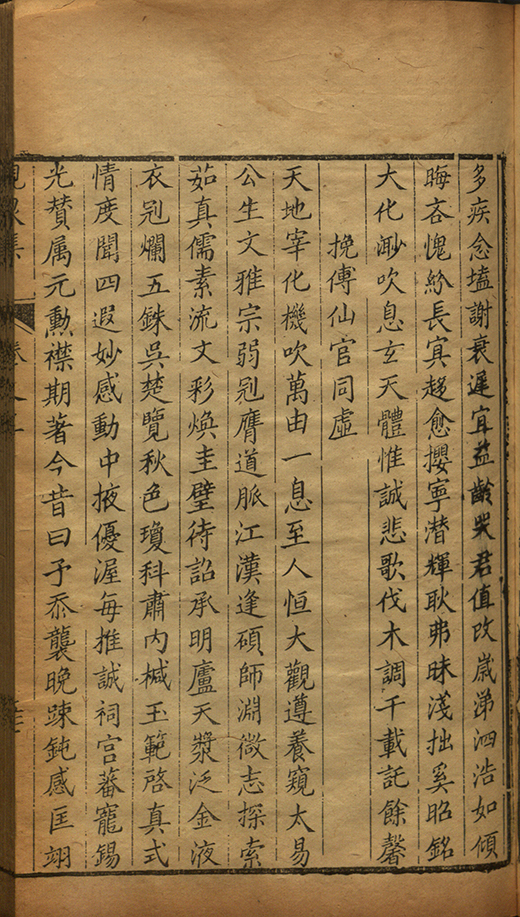 多疾念壒謝衰遲宜益齡哭君值改嵗涕泗浩如傾
晦吝愧紾長㝠趍愈攖寧潜輝耿弗昧淺拙奚昭銘
大化渺吹息玄天體惟誠悲歌伐木調千載託餘馨
挽傅仙官同虛
天地宰化機吹萬由一息至人恒大觀遵養窺太易
公生文雅宗弱冠膺道脈江漢逢碩師淵微志探索
茹真儒素流文彩煥圭璧待詔承明廬天漿泛金液
衣冠爛五銖吳楚覽秋色瓊科肅内椷玉範啓真式
情度聞四遐妙感動中掖優渥每推誠祠宫蕃寵錫
光賛属元勲襟期著今昔曰予忝襲晚踈鈍感匡翊
峴泉集